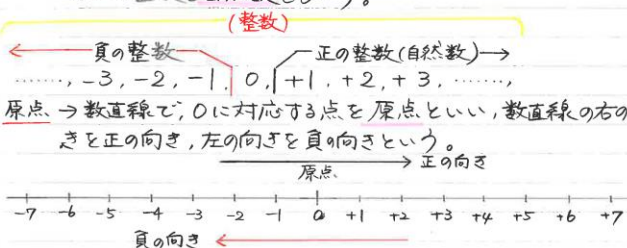 (整数)
← 負の整数 正の整数(自然数)→
……, -3, -2, -1, 0, +1, +2, +3, ……,
原点 → 数直線で, 0に対応する点を原点といい, 数直線の右の
きを正の向き, 左の向きを負の向きという。
→ 正の向き
原点
-7 -6 -5 -4 -3 -2 -1 0 +1 +2 +3 +4 +5 +6 +7
負の向き ←